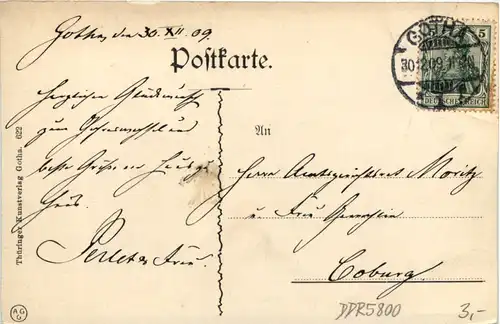 Gotha, den 30. XII. 09.
Postkarte.
Herzlichen Glückwunsch
zum Jahreswechsel und
beste Grüße von Haus zu
Haus.
Perlet u. Frau.
An
Herrn Amtsgerichtsrat Moritz
u. Frau Gemahlin
Coburg
GOTHA
30.12.09
5
DEUTSCHES REICH
Thüringer Kunstverlag Gotha. 622
DDR5800
3,-